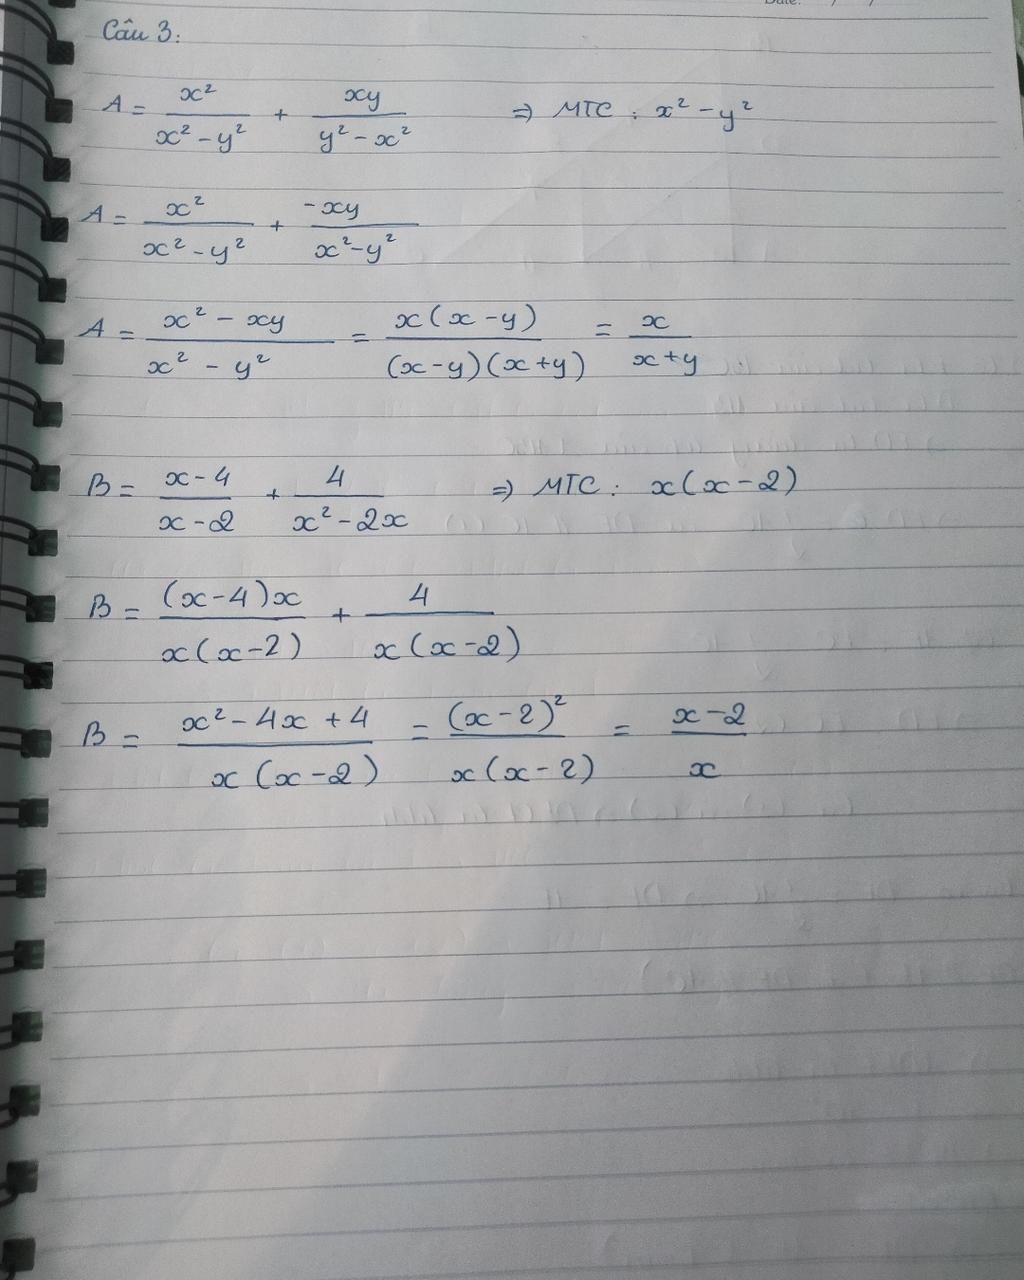 Date: / /
Câu 3:
A = x²/(x² - y²) + xy/(y² - x²) ⇒ MTC : x² - y²
A = x²/(x² - y²) + -xy/(x² - y²)
A = (x² - xy)/(x² - y²) = x(x - y)/((x - y)(x + y)) = x/(x + y)
B = (x - 4)/(x - 2) + 4/(x² - 2x) ⇒ MTC : x(x - 2)
B = (x - 4)x/(x(x - 2)) + 4/(x(x - 2))
B = (x² - 4x + 4)/(x(x - 2)) = (x - 2)²/(x(x - 2)) = (x - 2)/x